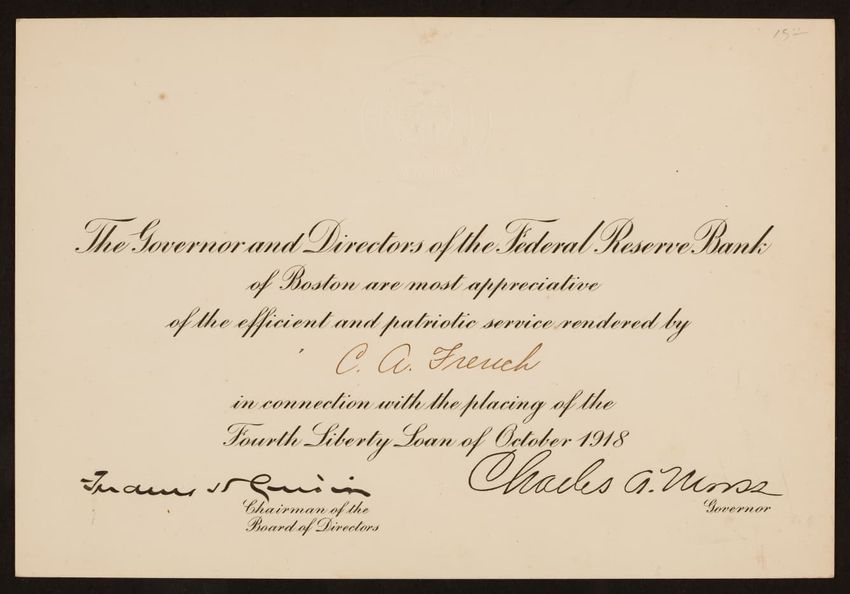 The Governor and Directors of the Federal Reserve Bank
of Boston are most appreciative
of the efficient and patriotic service rendered by
C. A. French
in connection with the placing of the
Fourth Liberty Loan of October 1918
Charles A. Morss
Chairman of the
Board of Directors
Governor